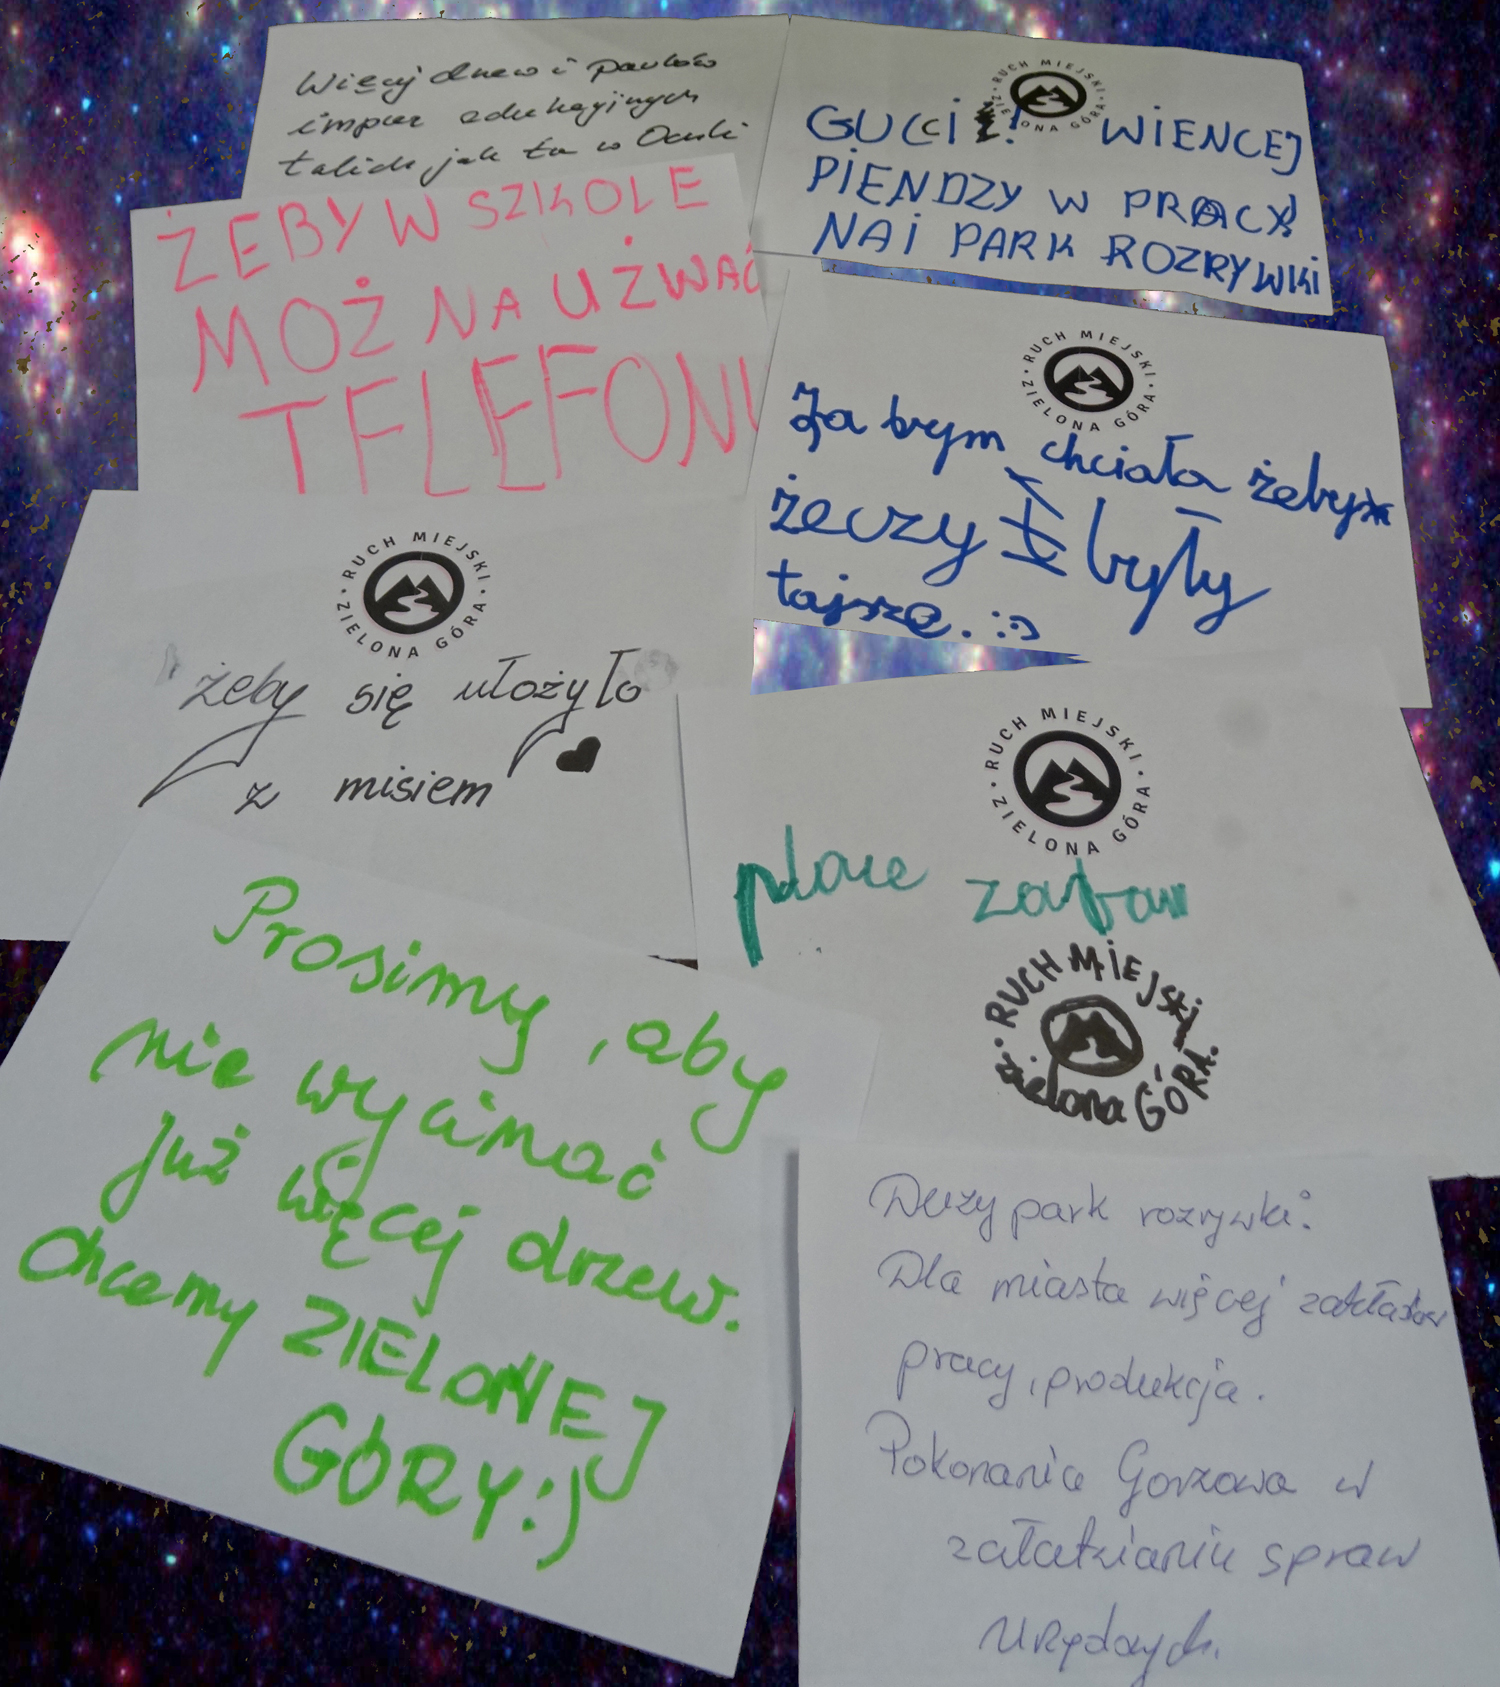 Więcej drzew i parków
imprez edukacyjnych
takich jak ta w Ochli
RUCH MIEJSKI
ZIELONA GÓRA
GUCCI ! WIENCEJ
PIENDZY W PRACY!
NA I PARK ROZRYWKI
ŻEBY W SZKOLE
MOŻNA UŻWAĆ
TELEFONU
RUCH MIEJSKI
ZIELONA GÓRA
Ja bym chciała żeby
żeczy były
tajsze. :-)
RUCH MIEJSKI
ZIELONA GÓRA
żeby się ułożyło
z misiem
RUCH MIEJSKI
ZIELONA GÓRA
place zabaw
RUCH MiEJSki
zielona GÓRA
Prosimy, aby
nie wycinać
już więcej drzew.
Chcemy ZIELONEJ
GÓRY:)
Duży park rozrywki:
Dla miasta więcej zakładów
pracy, produkcja.
Pokonanie Gorzowa w
załatwianiu spraw
urzędowych.